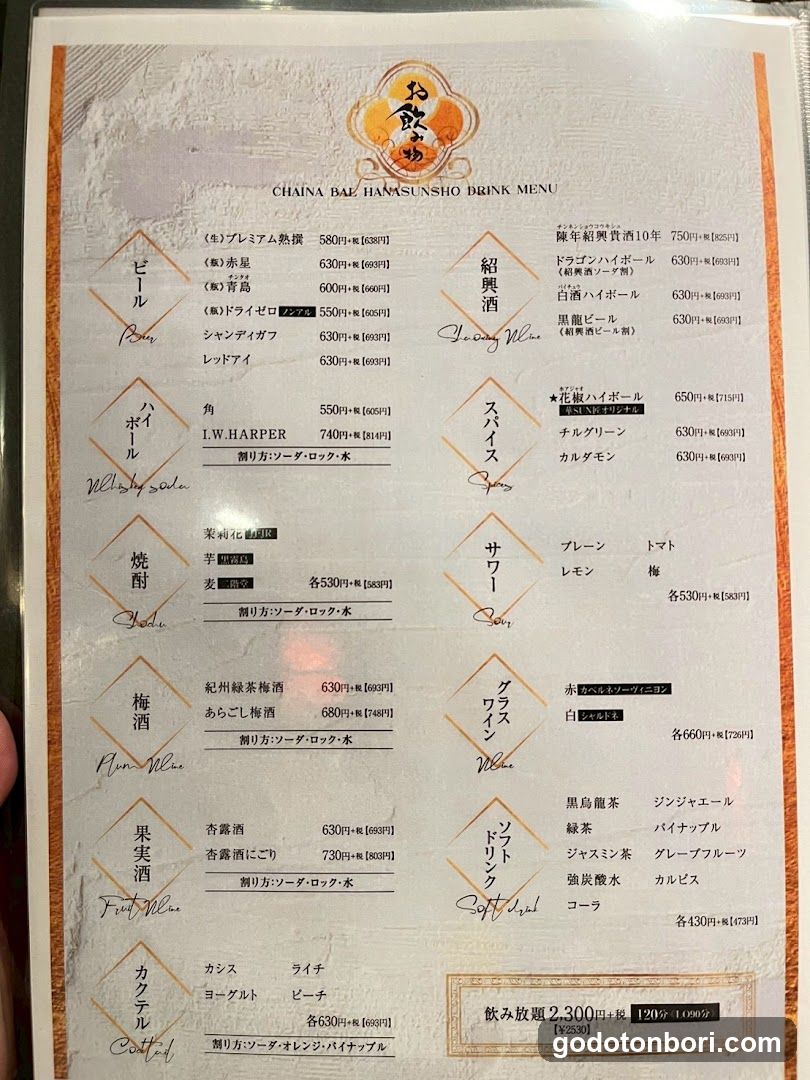 お飲み物
CHAINA BAL HANASUNSHO DRINK MENU
ビール
Beer
《生》プレミアム熟撰 580円+税【638円】
《瓶》赤星 630円+税【693円】
チンタオ
《瓶》青島 600円+税【660円】
《瓶》ドライゼロ ノンアル 550円+税【605円】
シャンディガフ 630円+税【693円】
レッドアイ 630円+税【693円】
ハイボール
Whiskey soda
角 550円+税【605円】
I.W.HARPER 740円+税【814円】
割り方:ソーダ・ロック・水
焼酎
Shochu
茉莉花 JJ・JR
芋 黒霧島
麦 二階堂 各530円+税【583円】
割り方:ソーダ・ロック・水
梅酒
Plum Wine
紀州緑茶梅酒 630円+税【693円】
あらごし梅酒 680円+税【748円】
割り方:ソーダ・ロック・水
果実酒
Fruit Wine
杏露酒 630円+税【693円】
杏露酒にごり 730円+税【803円】
割り方:ソーダ・ロック・水
カクテル
Cocktail
カシス ライチ
ヨーグルト ピーチ
各630円+税【693円】
割り方:ソーダ・オレンジ・パイナップル
紹興酒
Shaoxing Wine
チンネンショウコウキシュ
陳年紹興貴酒10年 750円+税【825円】
ドラゴンハイボール 630円+税【693円】
《紹興酒ソーダ割》
パイチュウ
白酒ハイボール 630円+税【693円】
黒龍ビール 630円+税【693円】
《紹興酒ビール割》
スパイス
Spices
ホアジャオ
★花椒ハイボール 650円+税【715円】
華SUN匠オリジナル
チルグリーン 630円+税【693円】
カルダモン 630円+税【693円】
サワー
Sour
プレーン トマト
レモン 梅
各530円+税【583円】
グラスワイン
Wine
赤 カベルネソーヴィニヨン
白 シャルドネ
各660円+税【726円】
ソフトドリンク
Soft drink
黒烏龍茶 ジンジャエール
緑茶 パイナップル
ジャスミン茶 グレープフルーツ
強炭酸水 カルピス
コーラ
各430円+税【473円】
飲み放題 2,300円+税 120分《LO90分》
【¥2530】
godotonbori.com